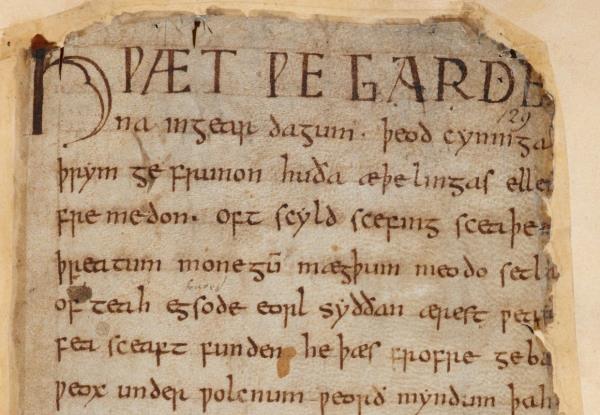 HǷÆT ǷE GARDE
129
na ingear dagum. þeod cyninga
þrym ge frunon huða æþelingas ellen
fremedon. oft scyld scefing sceaþe
þreatum monegū mægþum meodo setla
of teah egsode eorl syððan ærest ƿearð
fea sceaft funden he þæs frofre geba
ƿeox under ƿolcnum ƿeorð myndum þah